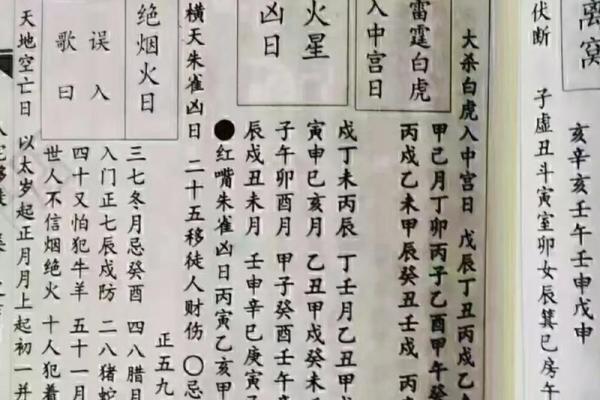 离窝
亥辛亥壬午壬申戊申
伏断 子虚丑斗寅室卯女辰箕巳房午
大杀白虎入中宫日 戊辰丁丑丙戌乙
雷霆白虎
入中宫日
甲己月丁卯丙子乙酉甲午癸
丙戌乙未甲辰癸丑壬戌 丙
火星
凶日
戌丁未丙辰 丁壬月乙丑甲
寅申巳亥月 乙丑甲戌癸未
子午卯酉月 甲子癸酉壬午
辰戌丑未月 壬申辛巳庚寅
●红嘴朱雀凶日丙寅乙亥甲
横天朱雀凶日 二十五移徒人财伤 〇忌
绝烟火日
误入
歌曰
正五九
三七冬月忌癸酉 四八腊月
入门正七辰戌防 二八猪蛇
四十又怕犯牛羊 五十一月
世人不信烟绝火 十人犯着
天地空亡日 以太岁起正月月上起初一并